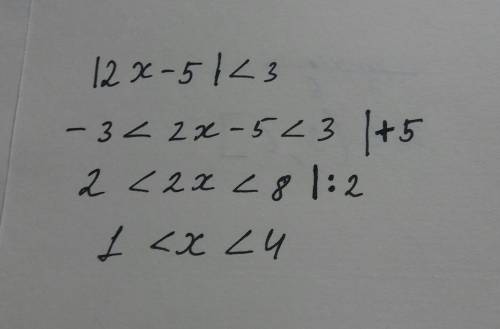 |2x-5|<3
-3<2x-5<3 |+5
2<2x<8 |:2
1<x<4